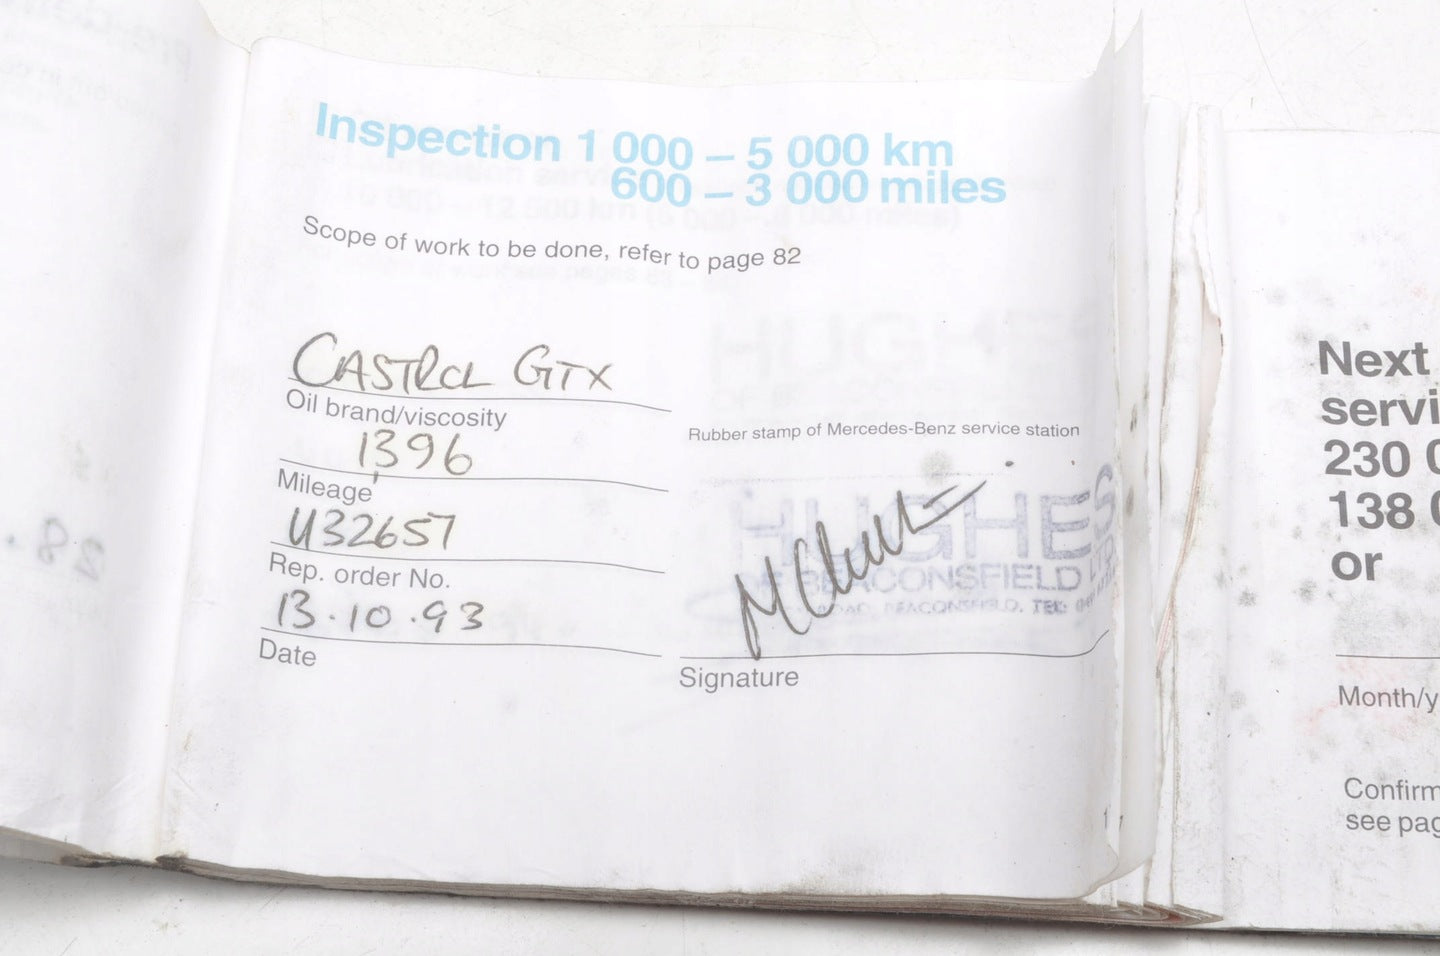 Inspection 1 000 – 5 000 km
600 – 3 000 miles
Scope of work to be done, refer to page 82
CASTROL GTX
Oil brand/viscosity
1396
Mileage
U32657
Rep. order No.
13.10.93
Date
Rubber stamp of Mercedes-Benz service station
HUGHES
OF BEACONSFIELD LTD
ROAD, BEACONSFIELD. TEL:
Signature
Next
servi
230 0
138 0
or
Month/y
Confirm
see pag